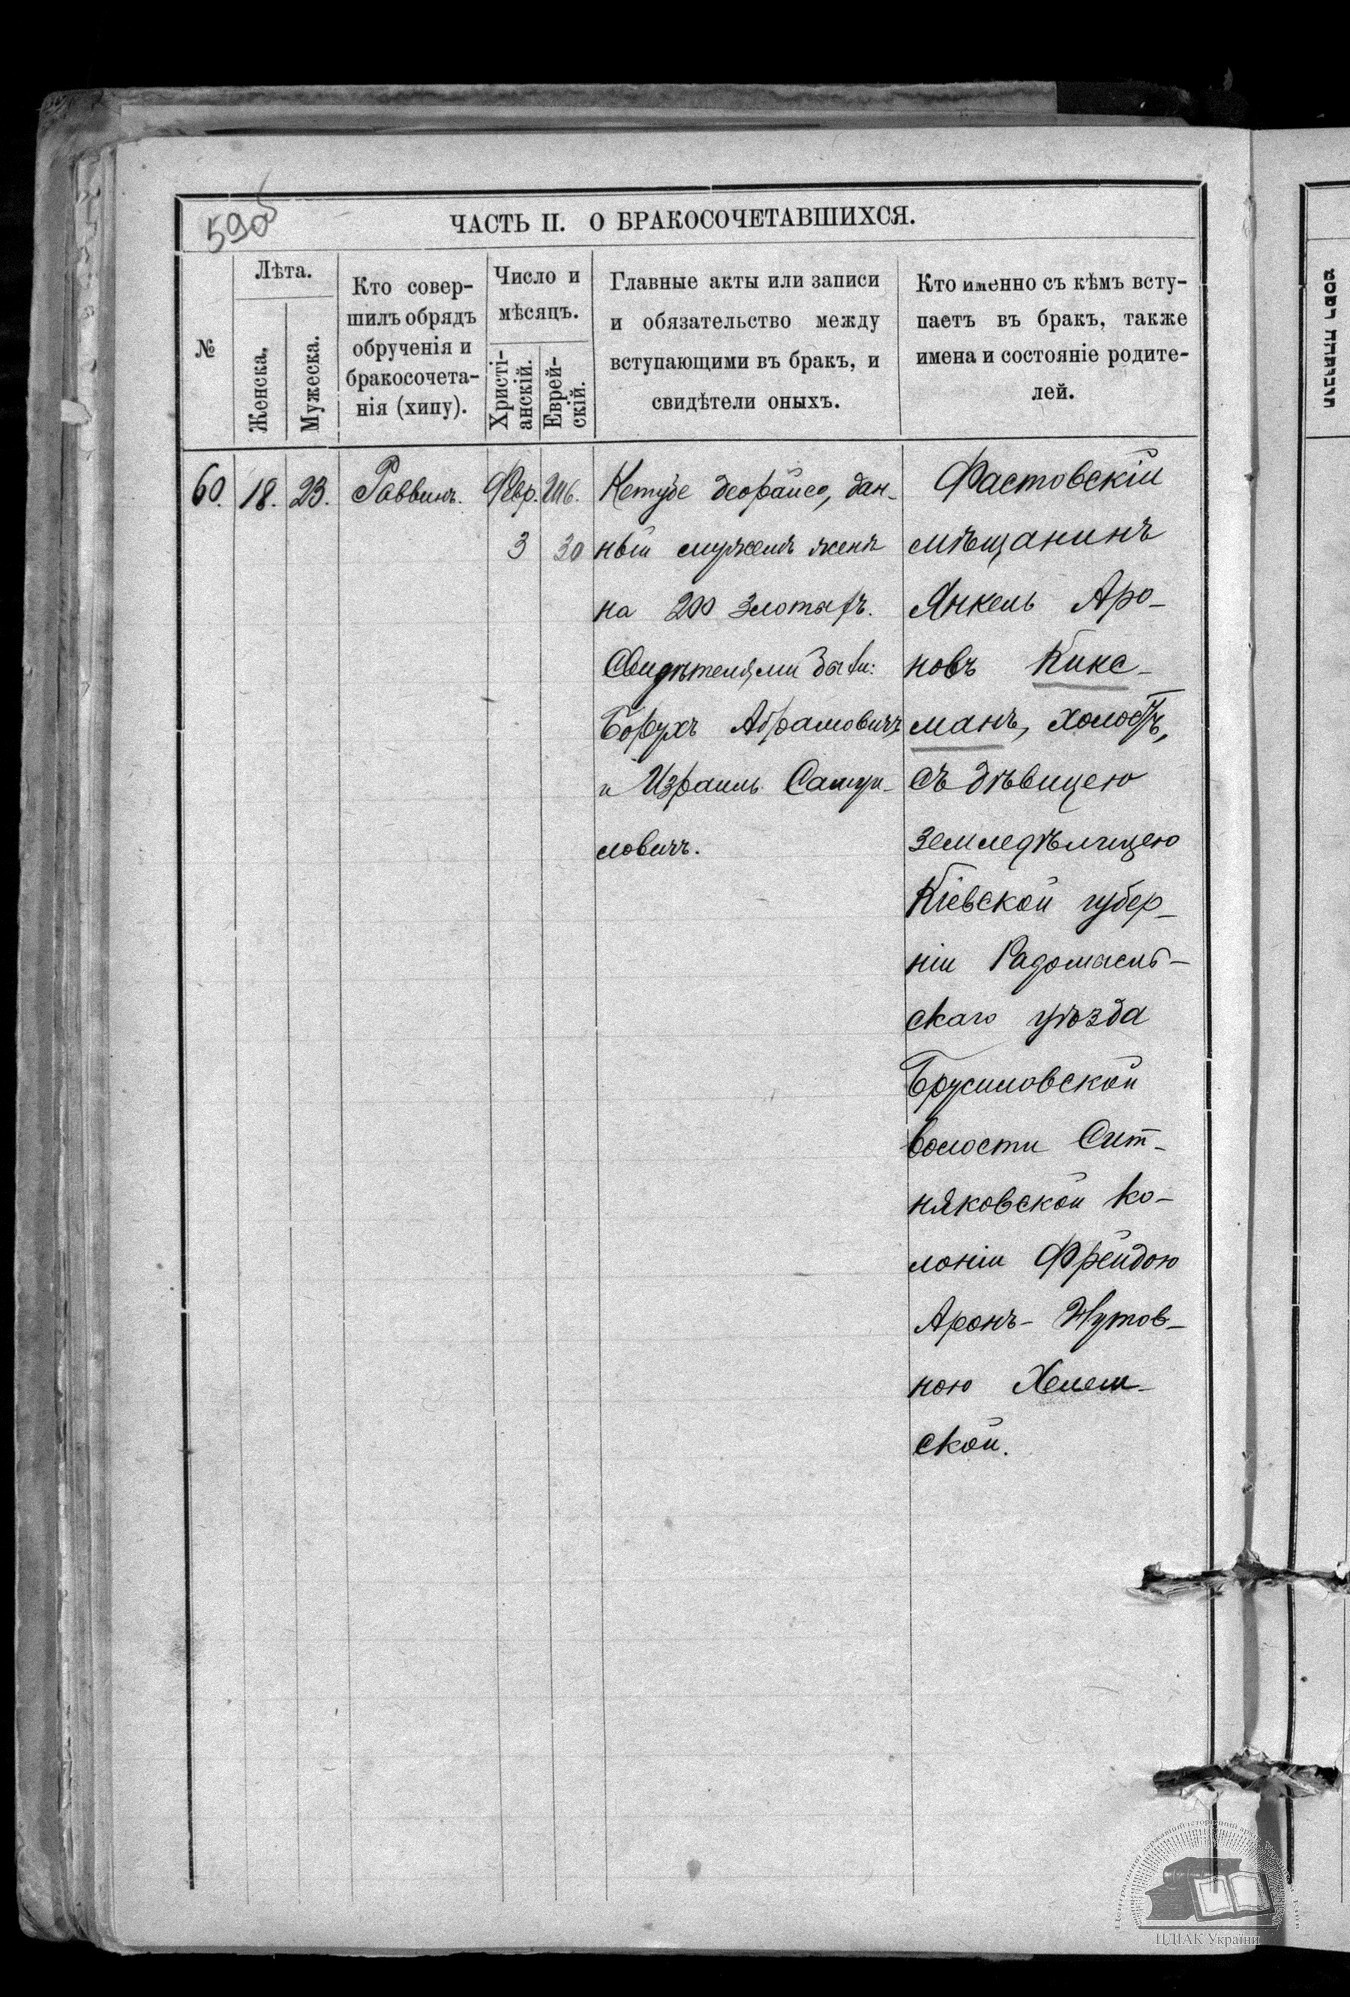 590
ЧАСТЬ II. О БРАКОСОЧЕТАВШИХСЯ.
№
Лѣта.
Женска.
Мужеска.
Кто совер-
шилъ обрядъ
обрученія и
бракосочета-
нія (хипу).
Число и
мѣсяцъ.
Христі-
анскій.
Еврей-
скій.
Главные акты или записи
и обязательство между
вступающими въ бракъ, и
свидѣтели оныхъ.
Кто именно съ кѣмъ всту-
паетъ въ бракъ, также
имена и состояніе родите-
лей.
60. 18. 23. Раввинъ. Февр. Шв.
3 30
Кетубе деорайсо, дан-
ный мужемъ женѣ
на 200 злотыхъ.
Свидѣтелями были:
Борухъ Абрамовичъ
и Израиль Самуи-
ловичъ.
Фастовскій
мѣщанинъ
Янкель Аро-
новъ Кикс-
манъ, холостъ,
съ дѣвицею
земледѣлицею
Кіевской губер-
ніи Радомысль-
скаго уѣзда
Брусиловской
волости Сит-
няковской ко-
лоніи Фрейдою
Аронъ-Нутов-
ною Хелем-
ской.
ЦДІАК України